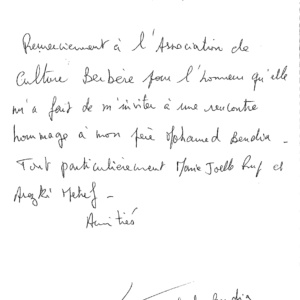 Remerciement à l'Association de
Culture Berbère pour l'honneur qu'elle
m'a fait de m'inviter à une rencontre
hommage à mon père Mohamed Bendia -
Tout particulièrement Marie Joelle et
Arezki Metref -
Amitiés